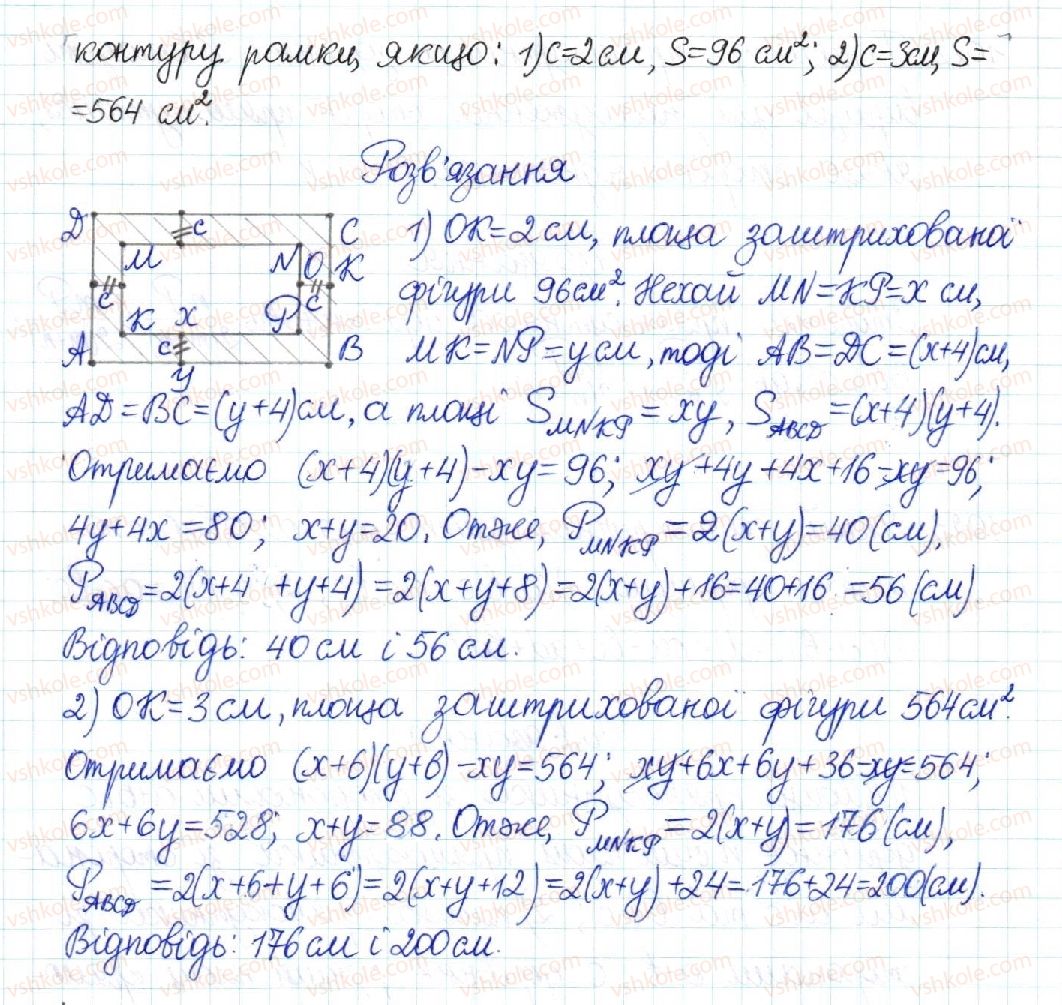 контуру рамки, якщо: 1) c=2 см, S=96 см²; 2) c=3 см, S=
=564 см².
Розв'язання
D c C
M N O K
c c
K x P
A c B
y
1) OK=2 см, площа заштрихованої
фігури 96 см². Нехай MN=KP=x см,
MK=NP=y см, тоді AB=DC=(x+4) см,
AD=BC=(y+4) см, а площі S_MNKP=xy, S_ABCD=(x+4)(y+4).
Отримаємо (x+4)(y+4)-xy=96; xy+4y+4x+16-xy=96;
4y+4x=80; x+y=20. Отже, P_MNKP=2(x+y)=40 (см),
P_ABCD=2(x+4+y+4)=2(x+y+8)=2(x+y)+16=40+16=56 (см)
Відповідь: 40 см і 56 см.
2) OK=3 см, площа заштрихованої фігури 564 см².
Отримаємо (x+6)(y+6)-xy=564; xy+6x+6y+36-xy=564;
6x+6y=528; x+y=88. Отже, P_MNKP=2(x+y)=176 (см),
P_ABCD=2(x+6+y+6)=2(x+y+12)=2(x+y)+24=176+24=200 (см).
Відповідь: 176 см і 200 см.
vshkole.com